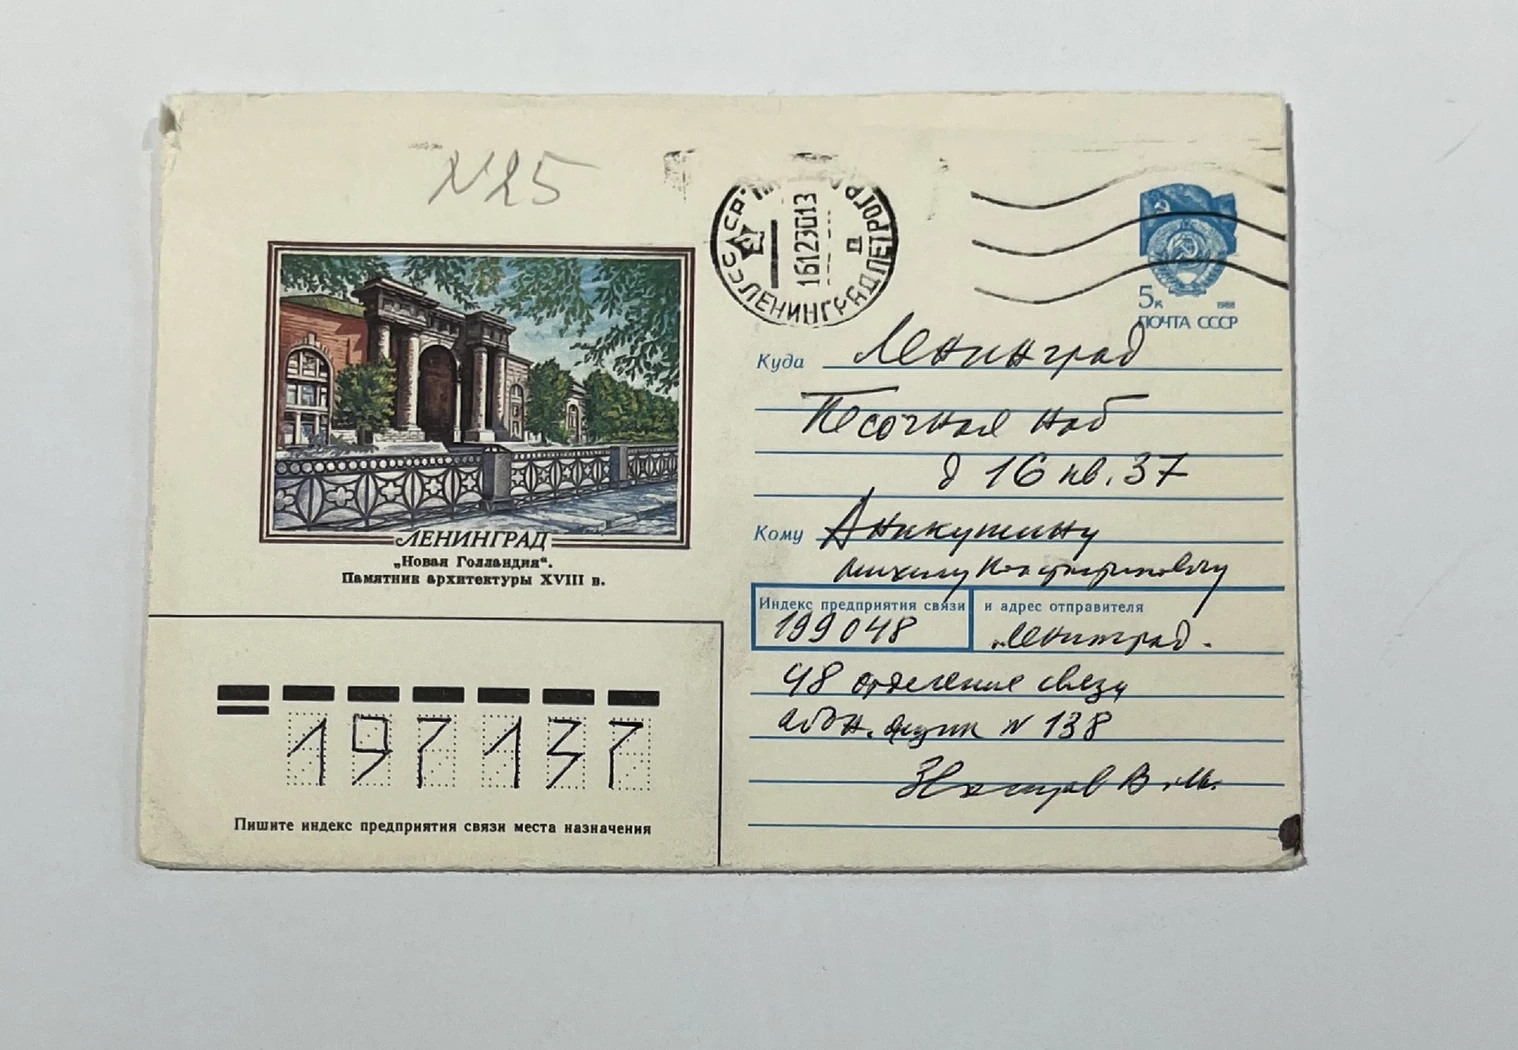 N25
СССР
ЛЕНИНГРАД
16123013
П
5к
1988
ПОЧТА СССР
ЛЕНИНГРАД
„Новая Голландия“.
Памятник архитектуры XVIII в.
Куда Ленинград
Песочная наб
д 16 кв. 37
Кому Аникушину
Михаилу Константиновичу
Индекс предприятия связи и адрес отправителя
199048 Ленинград.
48 отделение связи
абон. ящик N 138
В.М.
197137
Пишите индекс предприятия связи места назначения